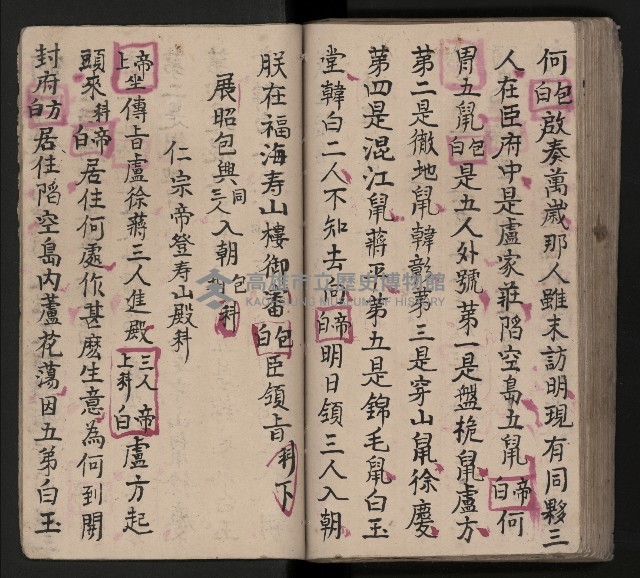 何包白啟奏萬歲那人雖未訪明現有同夥三
人在臣府中是盧家莊陷空島五鼠帝白何
周五鼠包白是五人外號第一是盤桅鼠盧方
第二是徹地鼠韓彰第三是穿山鼠徐慶
第四是混江鼠蔣平第五是錦毛鼠白玉
堂韓白二人不知去向帝白明日領三人入朝
朕在福海寿山樓御審包白臣領旨科下
展昭包興同三人入朝包科
仁宗帝登寿山殿科
帝坐上傳旨盧徐蔣三人進殿三人上科帝白盧方起
頭來科帝白居住何處作甚麽生意為何到開
封府方白居住陷空島內蘆花蕩因五弟白玉
高雄市立歷史博物館
KAOHSIUNG MUSEUM OF HISTORY